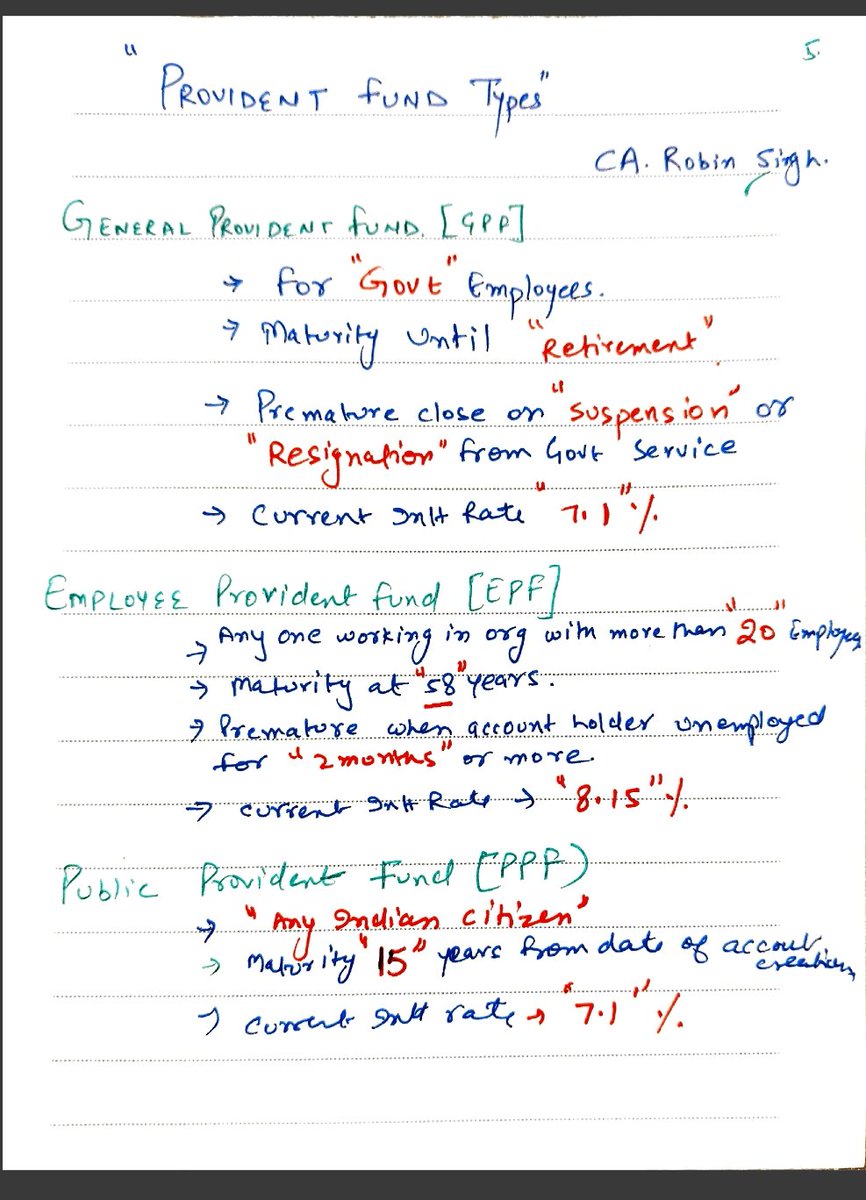 5.
"PROVIDENT FUND Types"
CA. Robin Singh.
GENERAL PROVIDENT FUND. [GPF]
→ For "Govt" Employees.
→ Maturity Until "Retirement"
→ Premature close on "Suspension" or
"Resignation" from Govt Service
→ Current Intt Rate "7.1"%
EMPLOYEE Provident Fund [EPF]
→ Any one working in org with more than "20" Employees
→ Maturity at "58" years.
→ Premature when account holder unemployed
for "2 months" or more.
→ Current Intt Rate → "8.15"%
PUBLIC Provident Fund (PPF)
→ "Any Indian Citizen"
→ Maturity "15" years from date of account
creation
→ Current Intt rate → "7.1"%